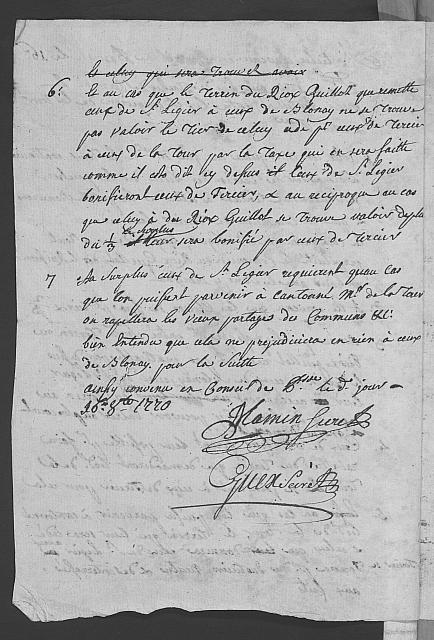 le celuy qui sera trouvé avoir
6. Et au cas que le terrein du Riox Guillot que remette
ceux de St Legier à ceux de Blonay ne se trouve
pas valoir le tier de celuy cédé pr ceux de Tercier
à ceux de la Tour par la Taxe qui en sera faitte
comme il est dit cy dessus et Ceux de St Legier
bonifieront ceux de Tercier, & au reciproque au cas
que celuy du Riox Guillot se trouve valoir de plus
du 1/3 le surplus leur sera bonifié par ceux de Tercier
7 Au Surplus ceux de St Legier requierent qu'au cas
que l'on puissent parvenir à cantonné Mrs de la Tour
on rapellera les vieux partages des Communs &c.
bien Entendu que cela ne prejudiciera en rien à ceux
de Blonay, pour la Suitte
Ainsy convenu en Conseil de le dt jour
1770
Mamin Secret
Guex Secret